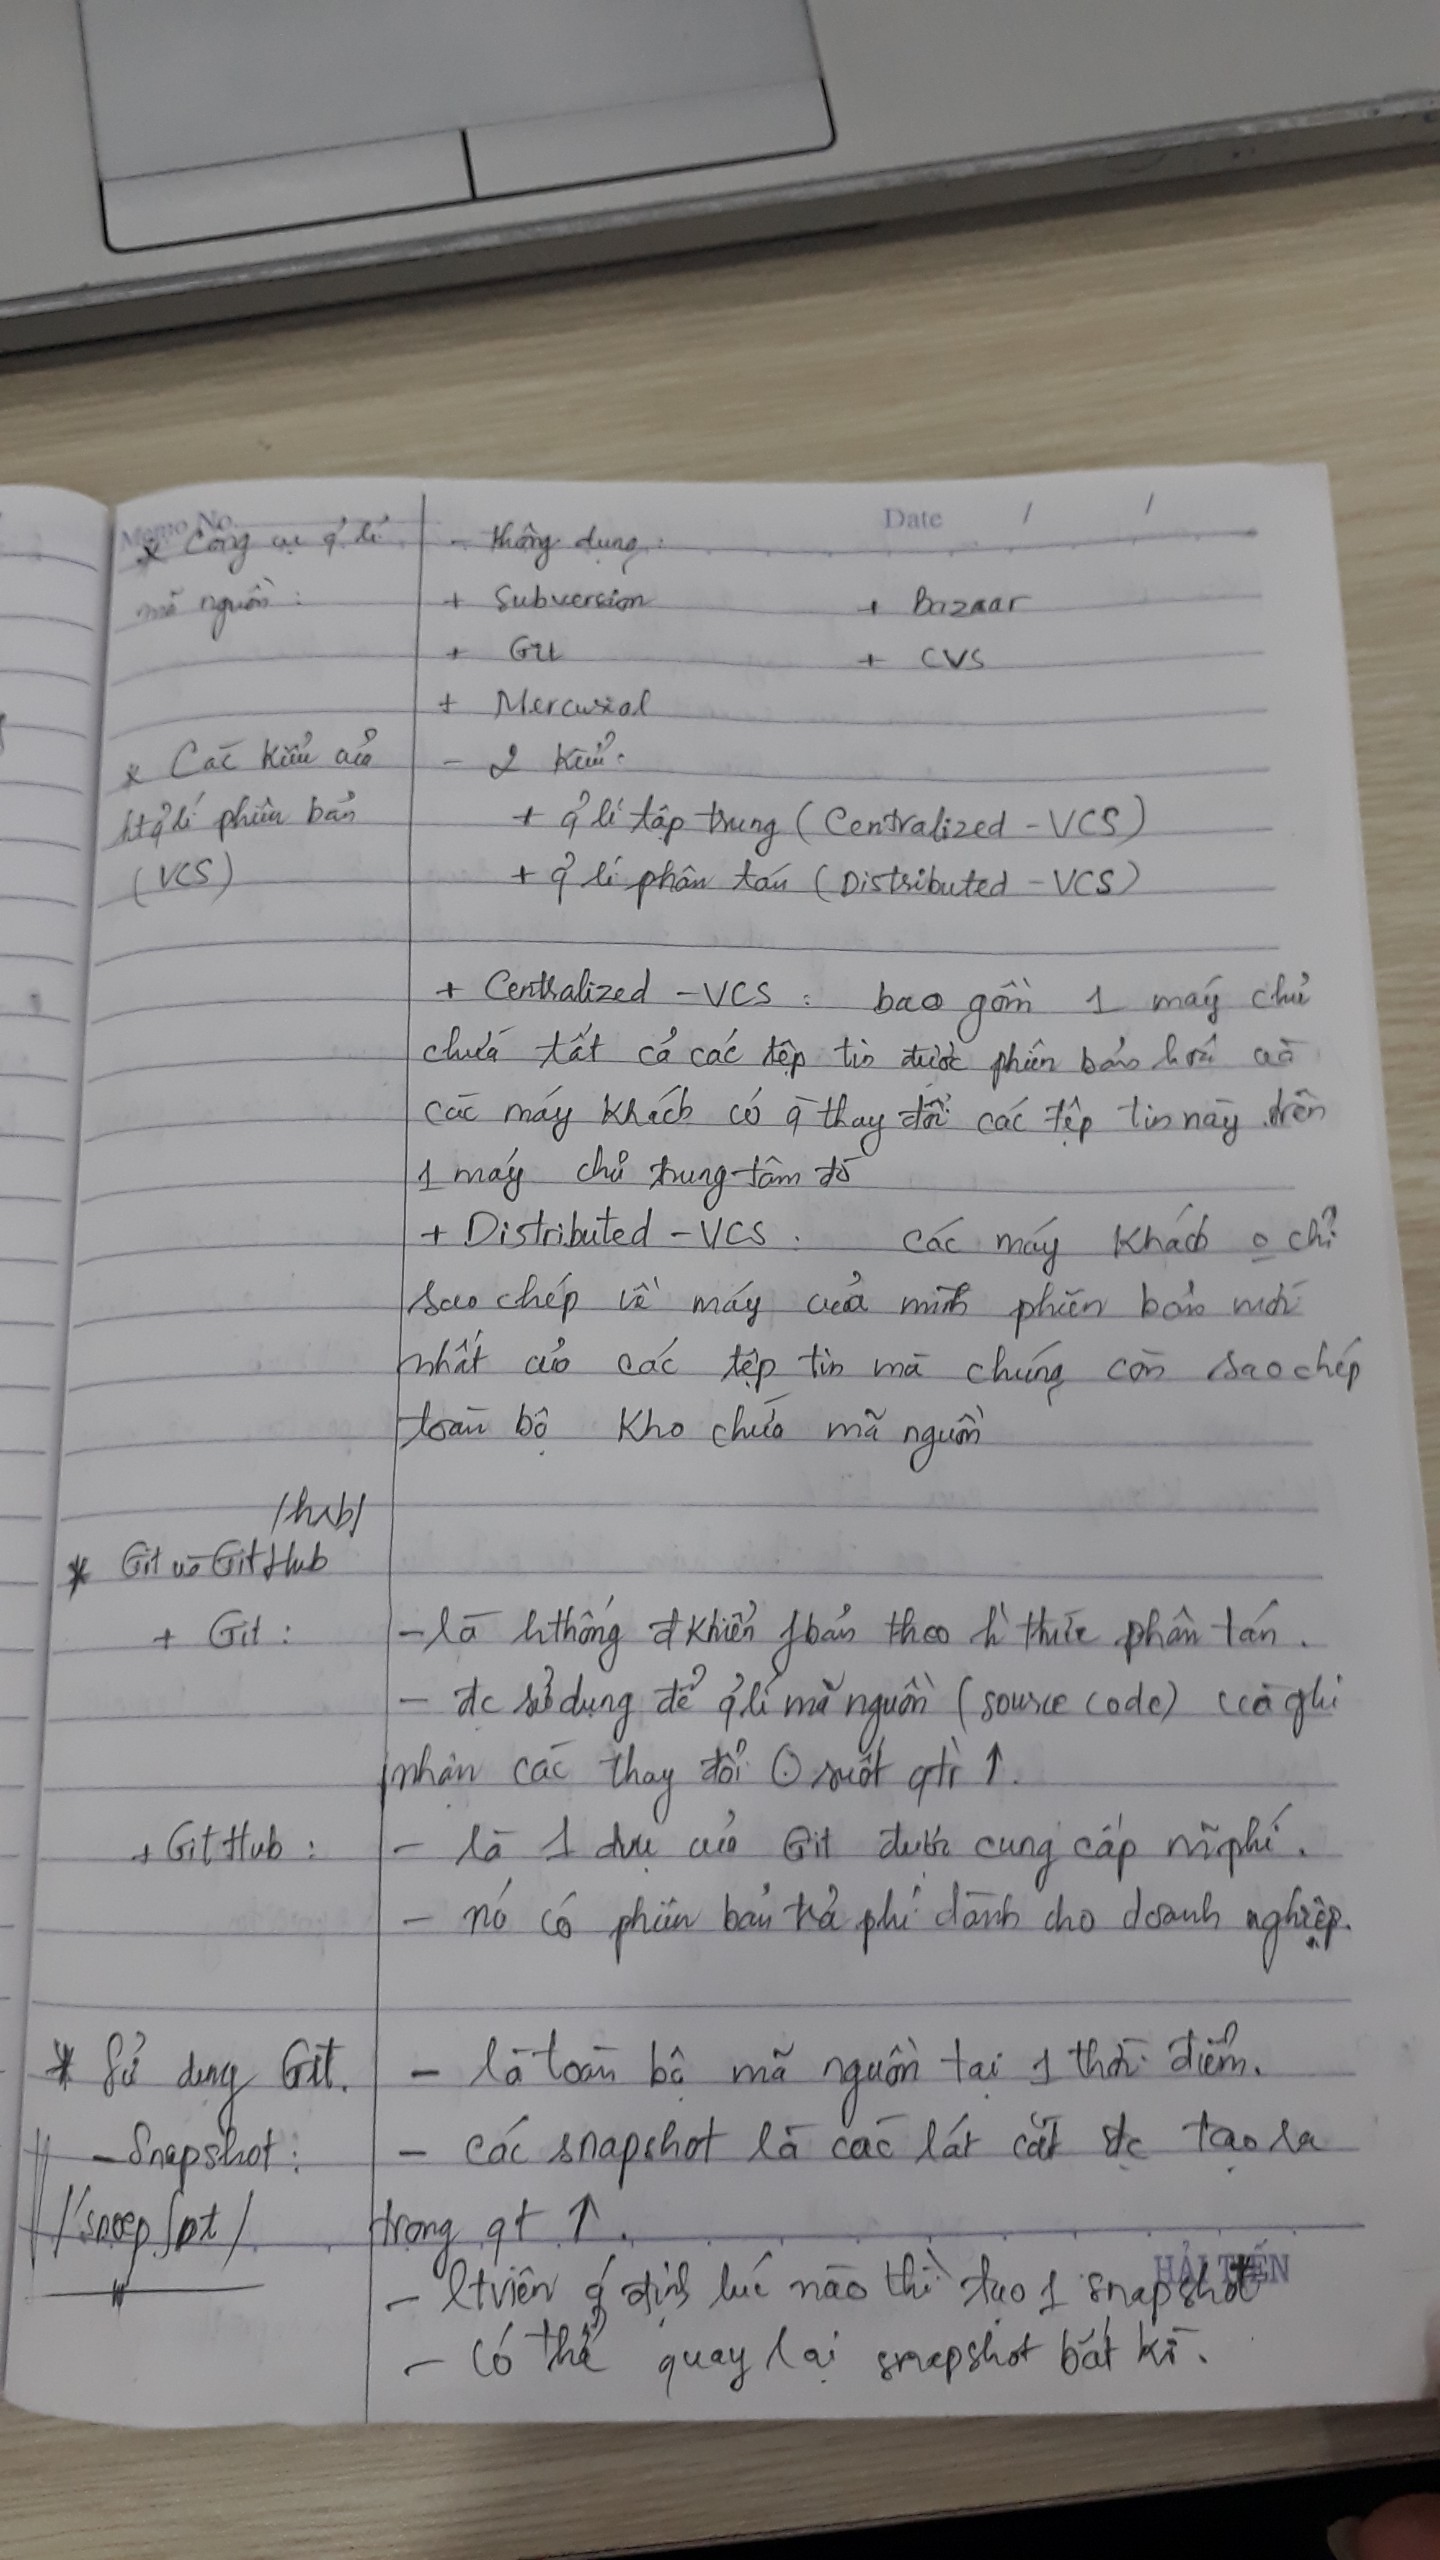 Memo No. Date / /
* Công cụ q̉ lí - thông dụng:
mã nguồn: + Subversion + Bazaar
+ Git + CVS
+ Mercurial
* Các kiểu củả - 2 kiểu:
ht q̉ lí phiên bản + q̉ lí tập trung (Centralized - VCS)
(VCS) + q̉ lí phân tán (Distributed - VCS)
+ Centralized - VCS: bao gồm 1 máy chủ
chứa tất cả các tệp tin được phiên bản hoá và
các máy khách có q̀ thay đổi các tệp tin này trên
1 máy chủ trung tâm đó
+ Distributed - VCS: các máy khách o chỉ
sao chép về máy của mình phiên bản mới
nhất của các tệp tin mà chúng còn sao chép
toàn bộ kho chứa mã nguồn
/hʌb/
* Git và GitHub
+ Git: - là hthống đ khiển fbản theo h̀ thức phân tán.
- đc sử dụng để q̉ lí mã nguồn (source code) và ghi
nhận các thay đổi ⊙ suốt qtr̀ ↑.
+ GitHub: - là 1 dvụ của Git được cung cấp mĩphí.
- nó có phiên bản trả phí dành cho doanh nghiệp.
* Sử dụng Git. - là toàn bộ mã nguồn tại 1 thời điểm.
- Snapshot: - các snapshot là các lát cắt đc tạo ra
/'snæpʃɒt/ trong qt ↑.
HẢI TIẾN
- ltviên q́ định lúc nào thì tạo 1 snapshot
- có thể quay lại snapshot bất kì.